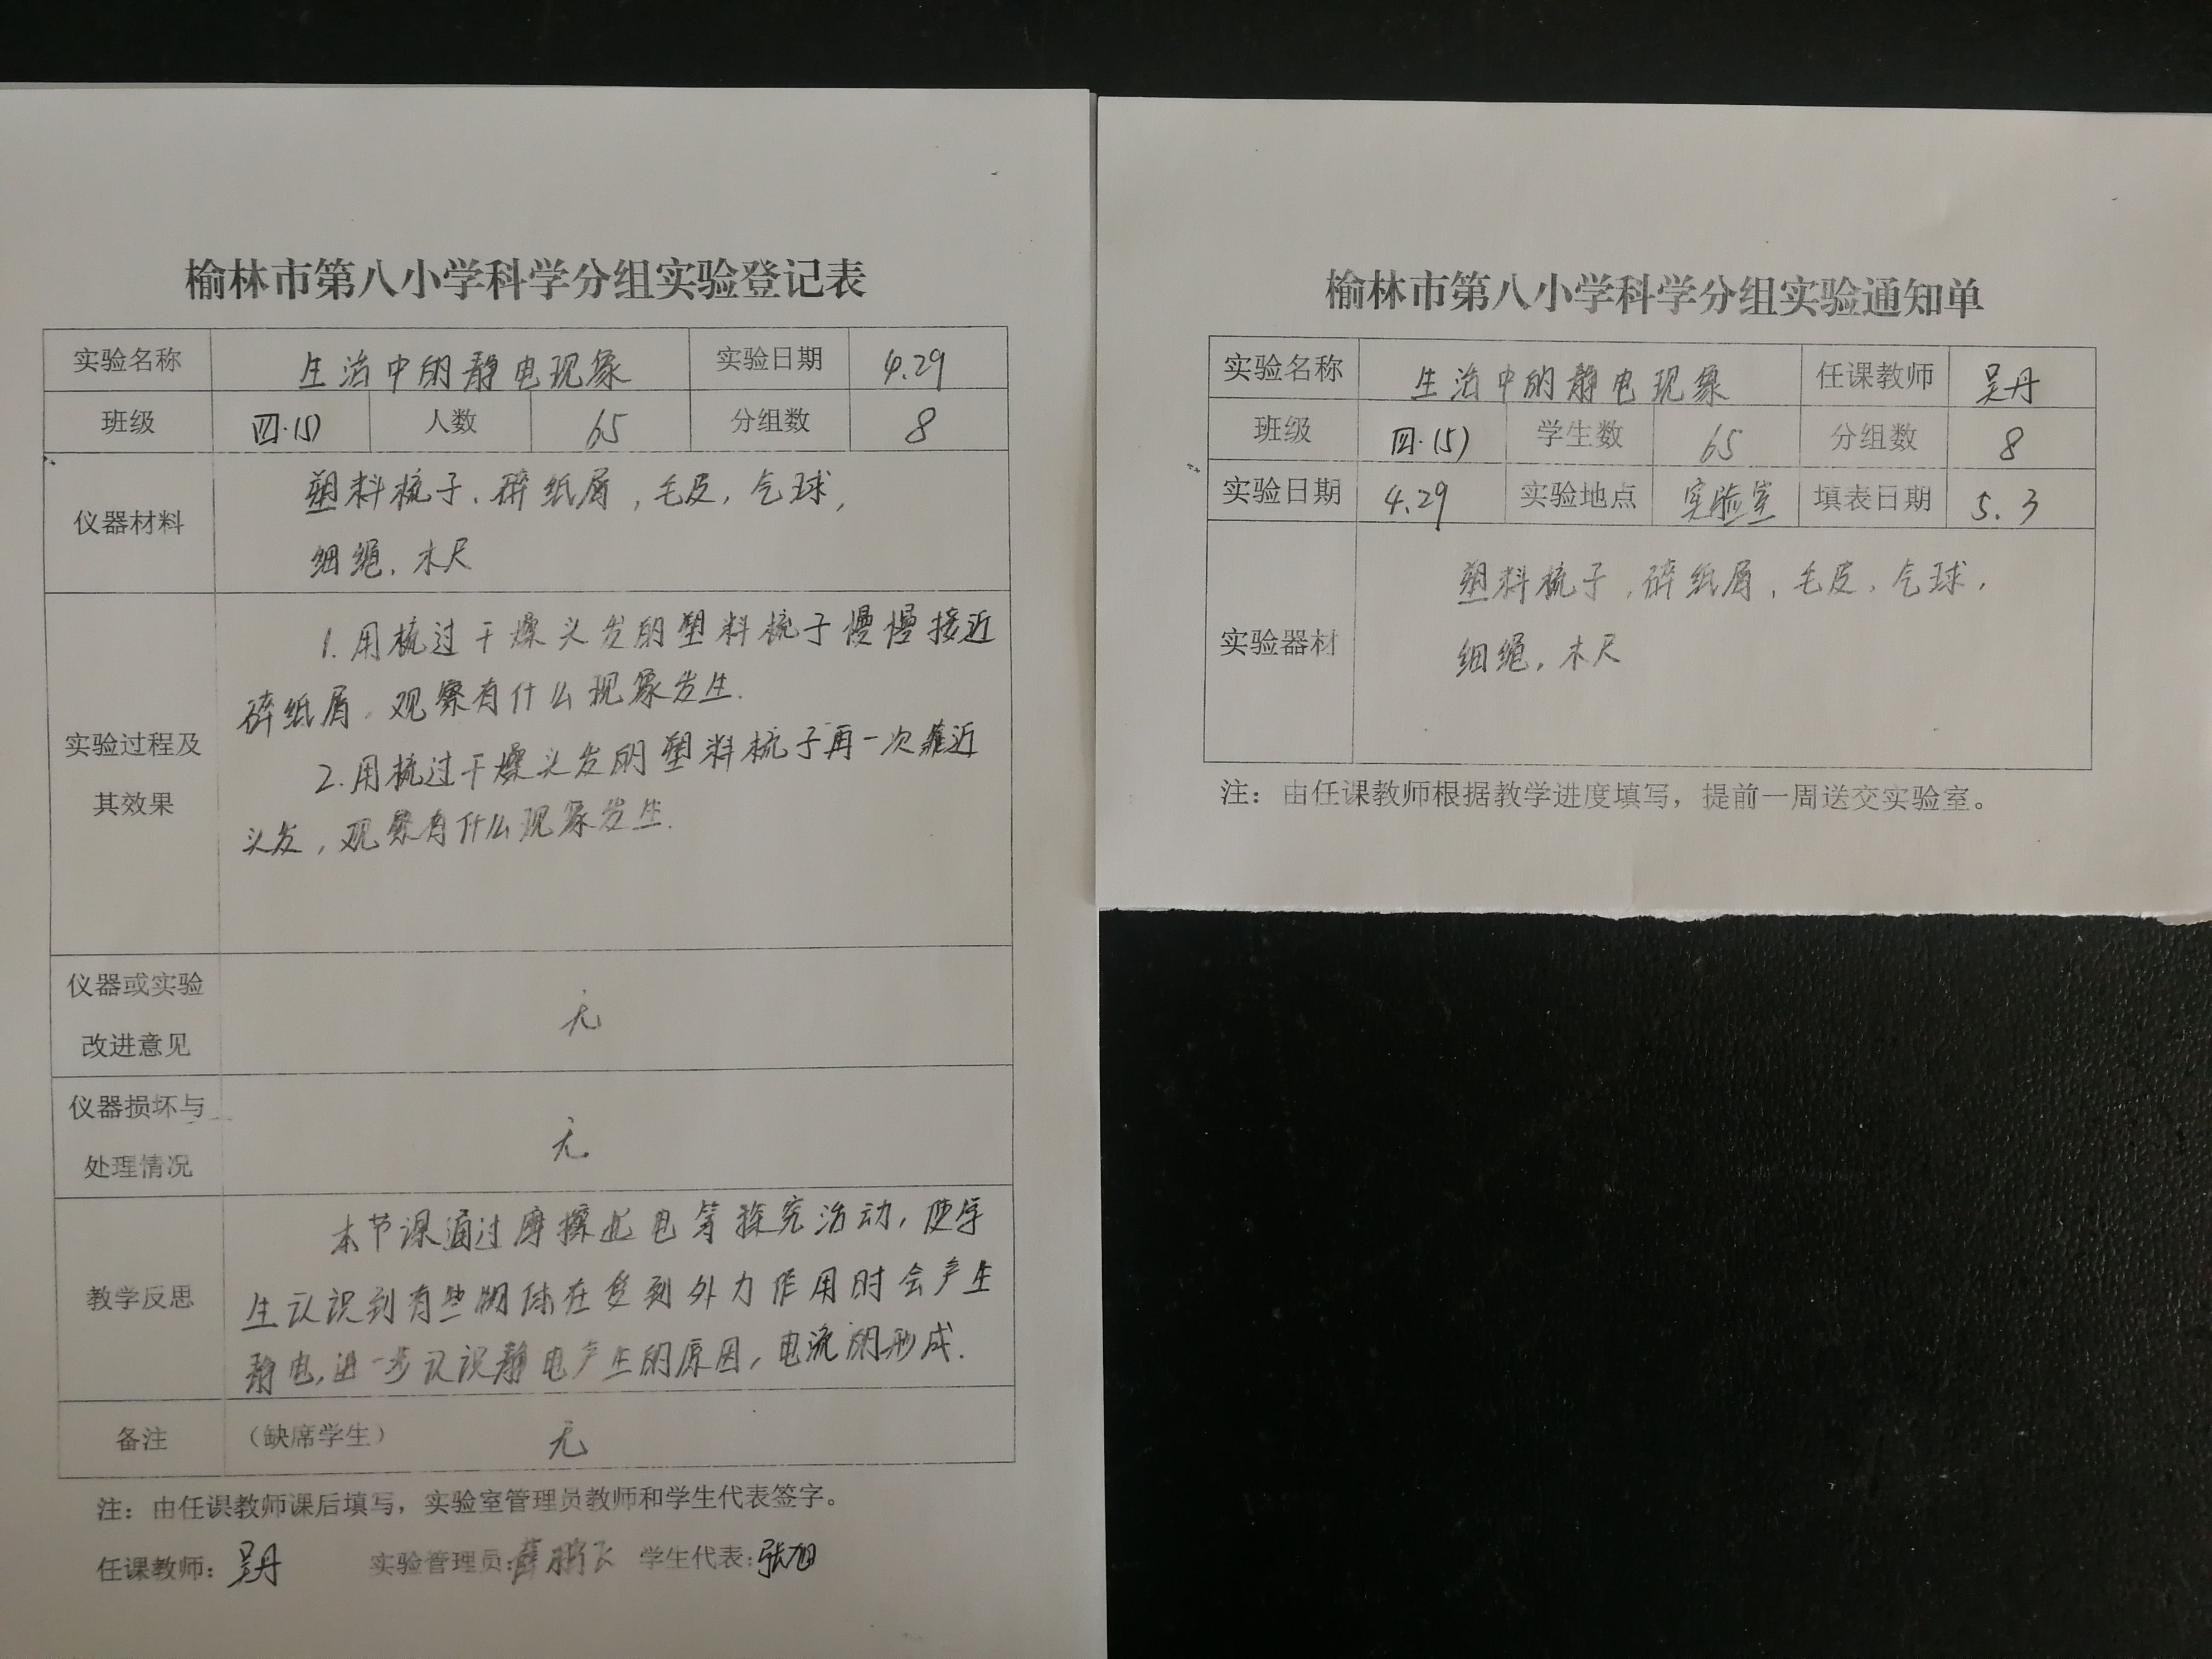 榆林市第八小学科学分组实验登记表
实验名称 生活中的静电现象 实验日期 4.29
班级 四·(5) 人数 65 分组数 8
仪器材料 塑料梳子、碎纸屑，毛皮，气球，
细绳，木尺
实验过程及其效果
1.用梳过干燥头发的塑料梳子慢慢接近
碎纸屑，观察有什么现象发生.
2.用梳过干燥头发的塑料梳子再一次靠近
头发，观察有什么现象发生.
仪器或实验改进意见 无
仪器损坏与处理情况 无.
教学反思
本节课通过摩擦起电等探究活动，使学
生认识到有些物体在受到外力作用时会产生
静电，进一步认识静电产生的原因，电流的形成.
备注 （缺席学生） 无
注：由任课教师课后填写，实验室管理员教师和学生代表签字。
任课教师：吴丹 实验管理员：薛鹏飞 学生代表：张旭
榆林市第八小学科学分组实验通知单
实验名称 生活中的静电现象 任课教师 吴丹
班级 四·(5) 学生数 65 分组数 8
实验日期 4.29 实验地点 实验室 填表日期 5.3
实验器材 塑料梳子，碎纸屑，毛皮，气球，
细绳，木尺
注：由任课教师根据教学进度填写，提前一周送交实验室。